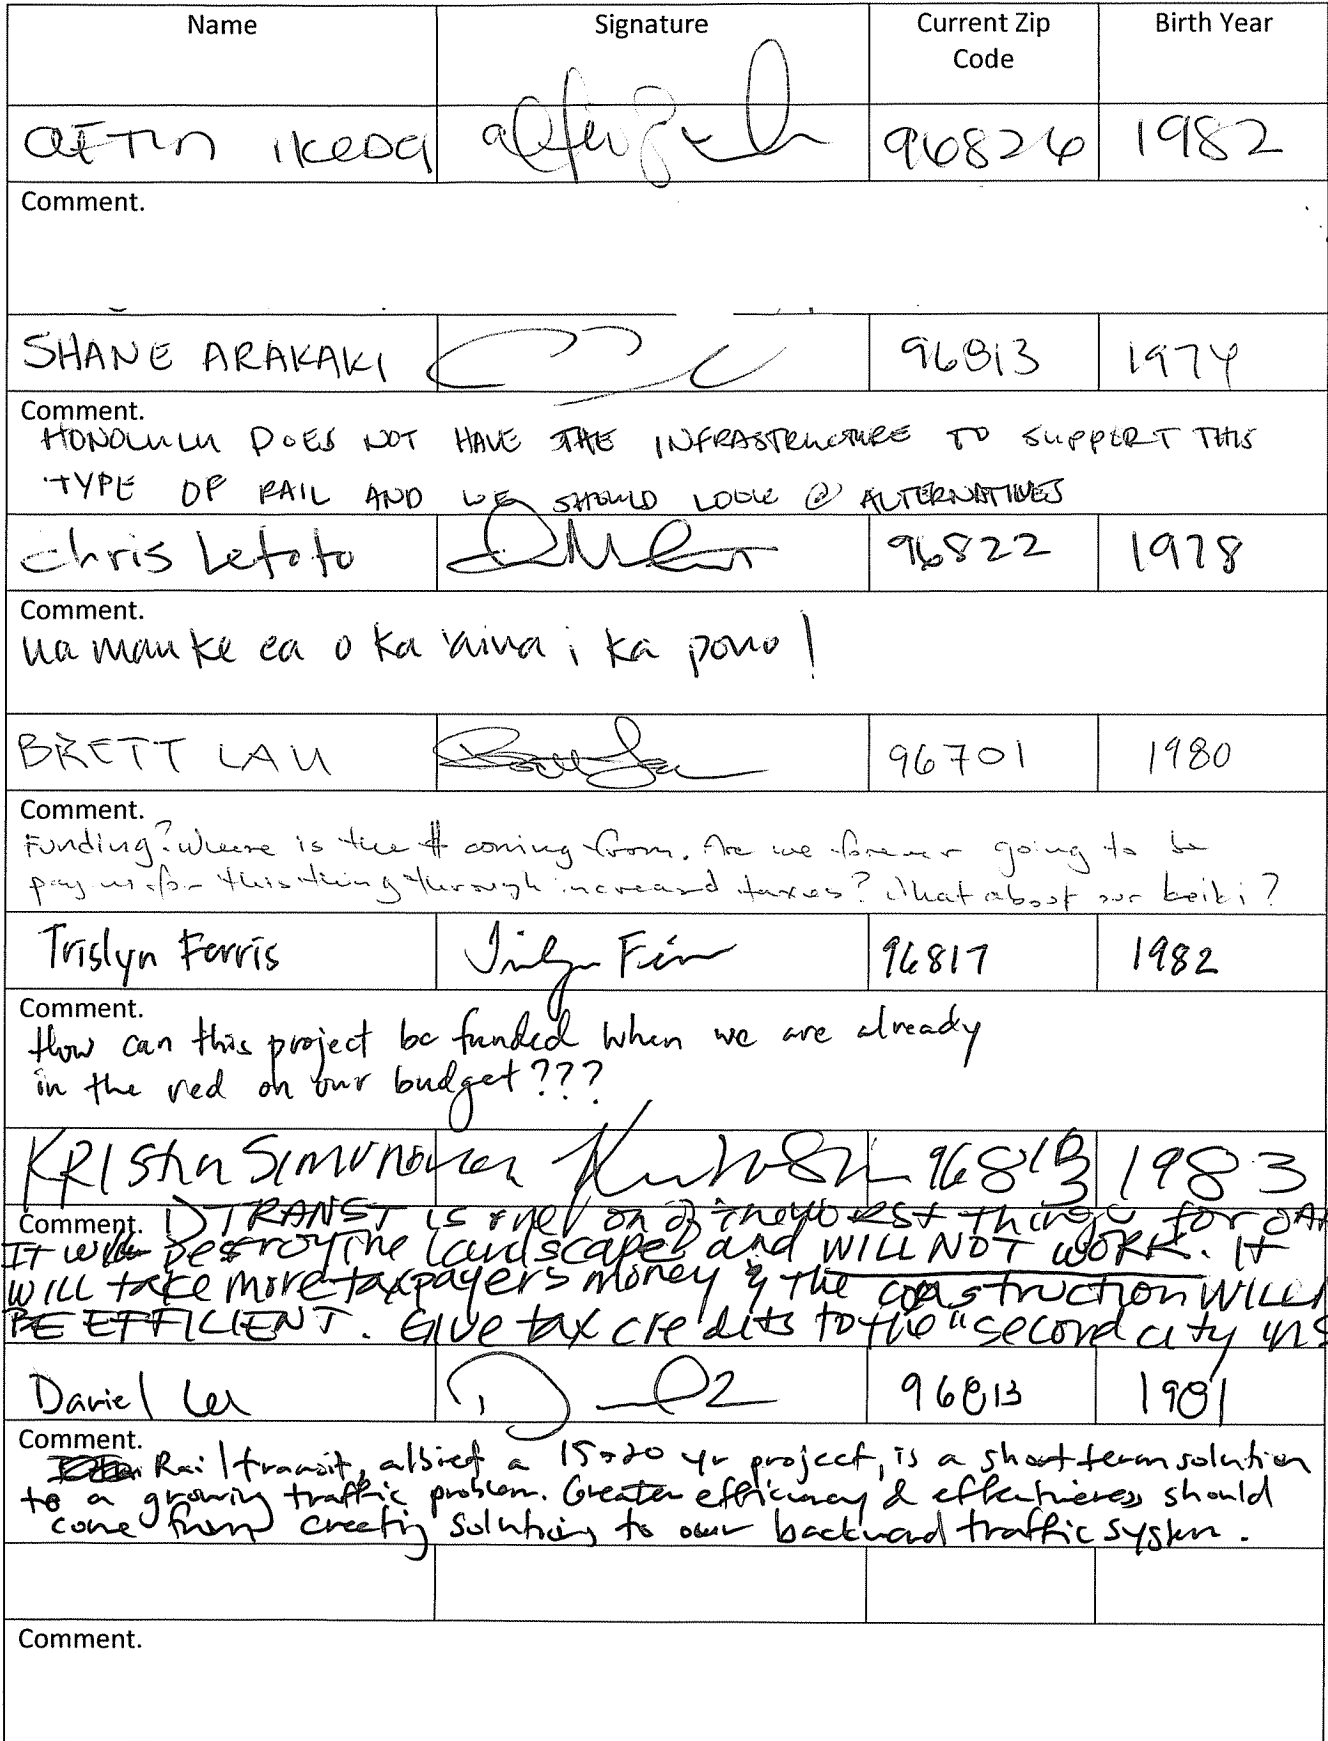 Name Signature Current Zip Code Birth Year
IKEDA 96826 1982
Comment.
SHANE ARAKAKI 96813 1974
Comment.
HONOLULU DOES NOT HAVE THE INFRASTRUCTURE TO SUPPORT THIS
TYPE OF RAIL AND WE SHOULD LOOK @ ALTERNATIVES
Chris Letoto 96822 1978
Comment.
ua mau ke ea o ka 'aina i ka pono!
BRETT LAU 96701 1980
Comment.
Funding? Where is the $ coming from. Are we forever going to be
paying for this thing through increased taxes? What about our keiki?
Trislyn Ferris Trislyn Ferris 96817 1982
Comment.
How can this project be funded when we are already
in the red on our budget???
KRIStin 96813 1983
Comment. TRANSIT is one of the worst things for
IT will Destroy the landscape and WILL NOT WORK. It
will take more taxpayers money & the construction WILL
BE EFFICIENT. Give tax credits to the "second city
Daniel Lee 96813 1981
Comment.
Rail transit, albeit a 15-20 yr project, is a short term solution
to a growing traffic problem. Greater efficiency & effectiveness should
come from creating solutions to our backward traffic system.
Comment.